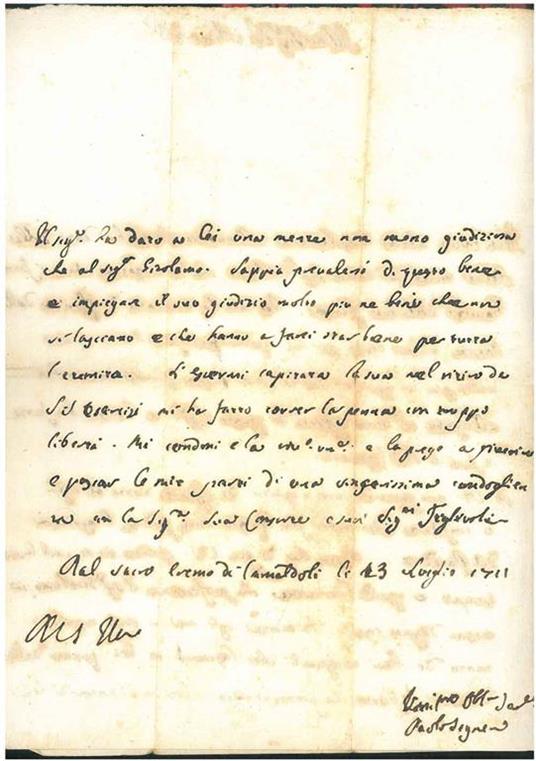 Il Sig.r ha dato a lei una mente non meno giudiziosa
che al Sig.r Girolamo. Sappia prevalersi di questo bene
e impiegare il suo giudizio molto più ne beni che non
si lasciano e che hanno a farci star bene per tutta
l'eternità. L'essermi capitata la sua nel ritiro de
SS Esercizi mi ha fatto correr la penna con troppo
libertà. Mi condoni e la e la prego a
e le mie parti di una sincerissima condoglien
za con la Sig.ra sua Consorte e suoi Sig.ri
Dal sacro Eremo di Camaldoli li 23 Luglio 1711
Paolo Segneri